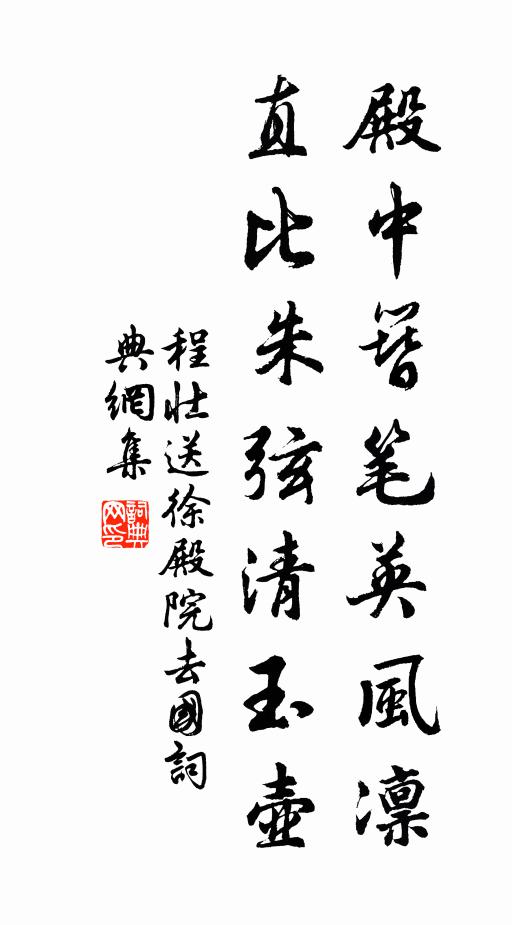 殿中簪笔英風凛
直比朱弦清玉壺
程壮送徐殿院去國詞
典網集
詞典网印